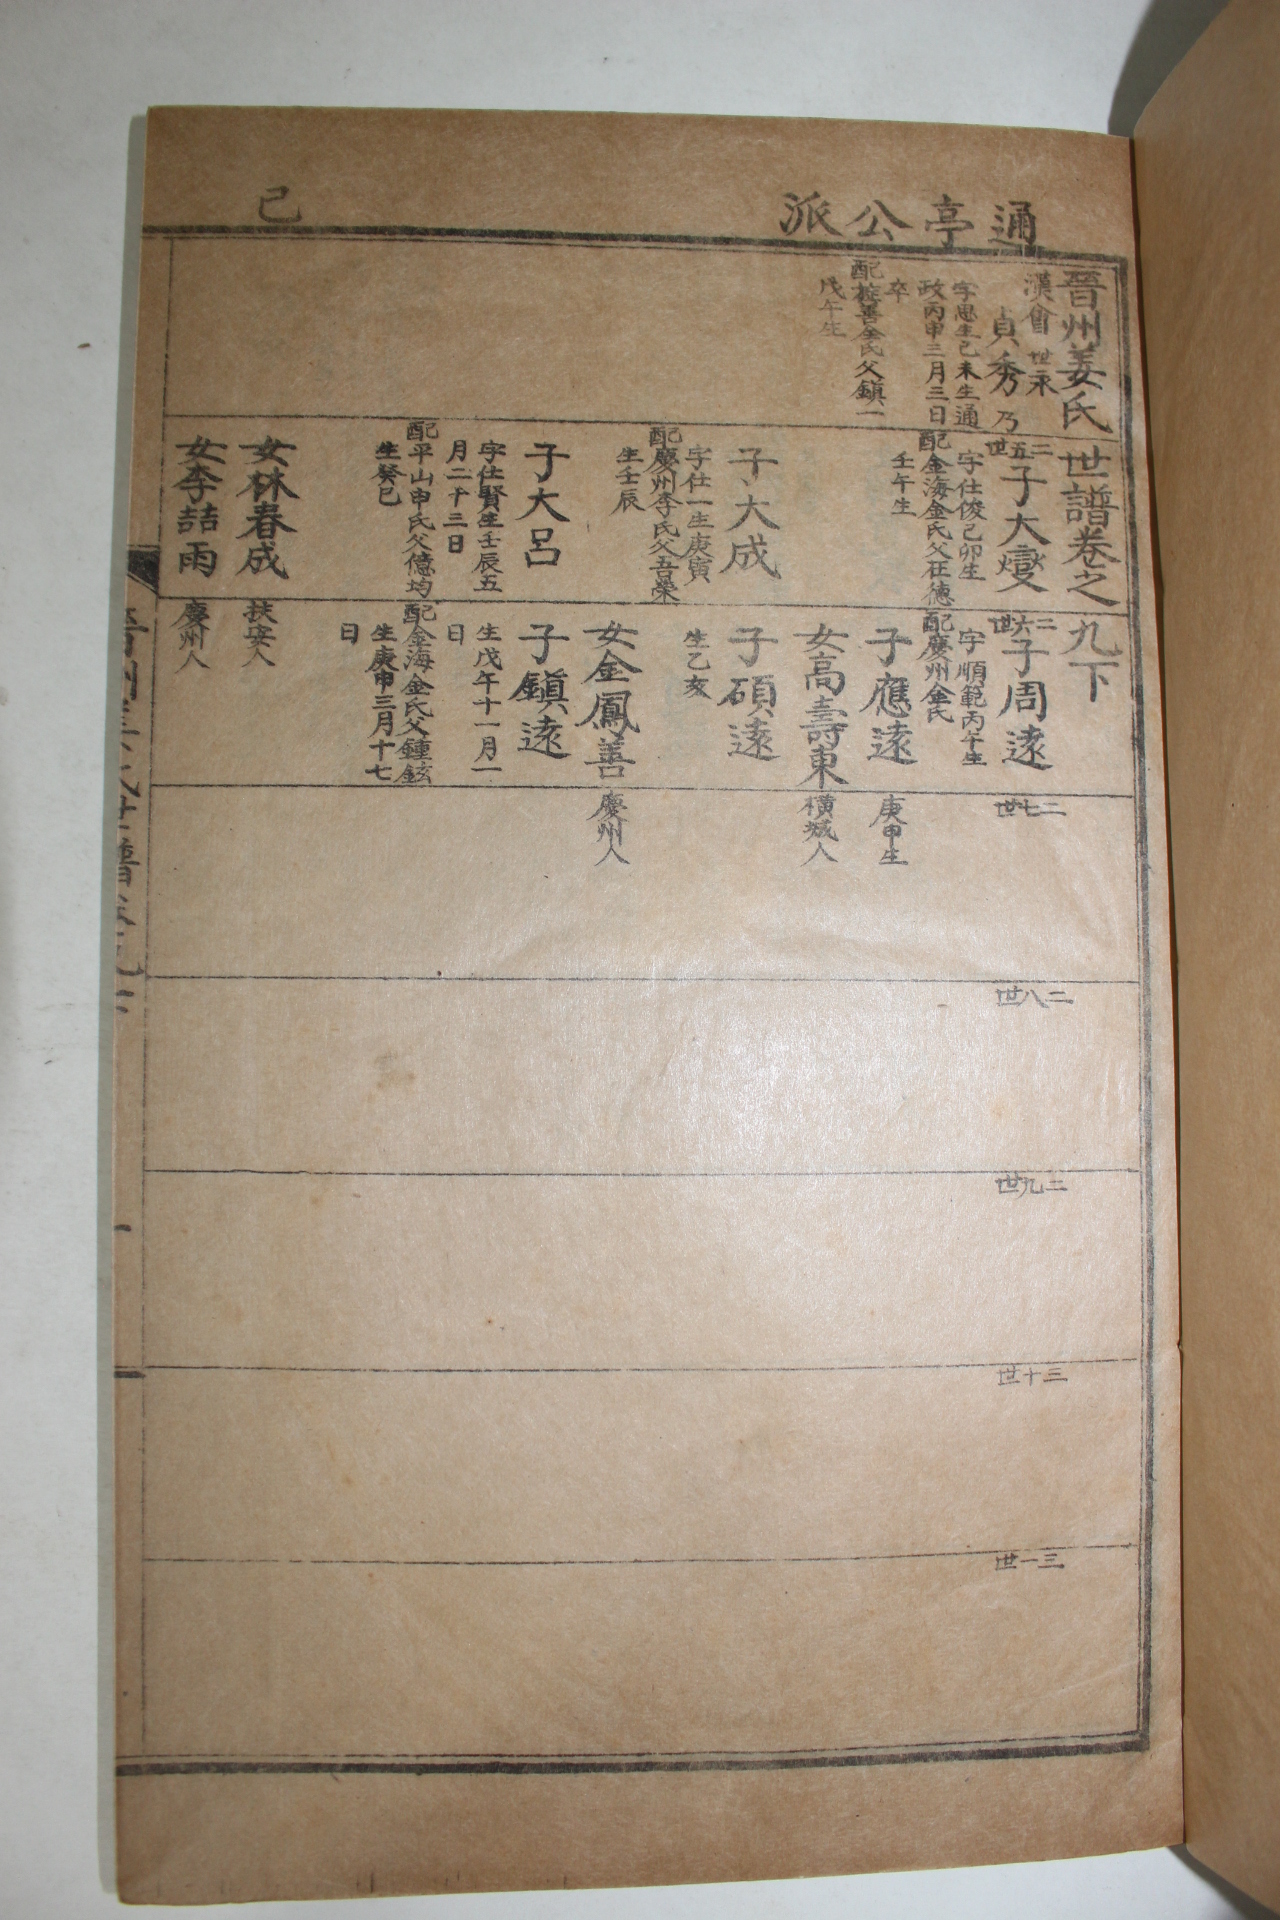 通亭公派
己
晉州姜氏世譜卷之九下
漢會
世永
貞秀
乃
字思生己未生通
政丙申三月三日
卒
配 善金氏父鎭一
戊午生
二五世
子大燮
字仕俊己卯生
配金海金氏父在德
壬午生
子大成
字仕一生庚寅
配慶州李氏父吾榮
生壬辰
子大呂
字仕賢生壬辰五
月二十三日
配平山申氏父億均
生癸巳
女林春成
扶安人
女李喆雨
慶州人
二六世
子周遠
字順範丙午生
配慶州金氏
子應遠
庚申生
女高壽東
橫城人
子碩遠
生乙亥
女金鳳善
慶州人
子鎭遠
生戊午十一月一
日
配金海金氏父鍾鉉
生庚申三月十七
日
二七世
二八世
二九世
三十世
三一世
晉州姜氏世譜卷九下
一